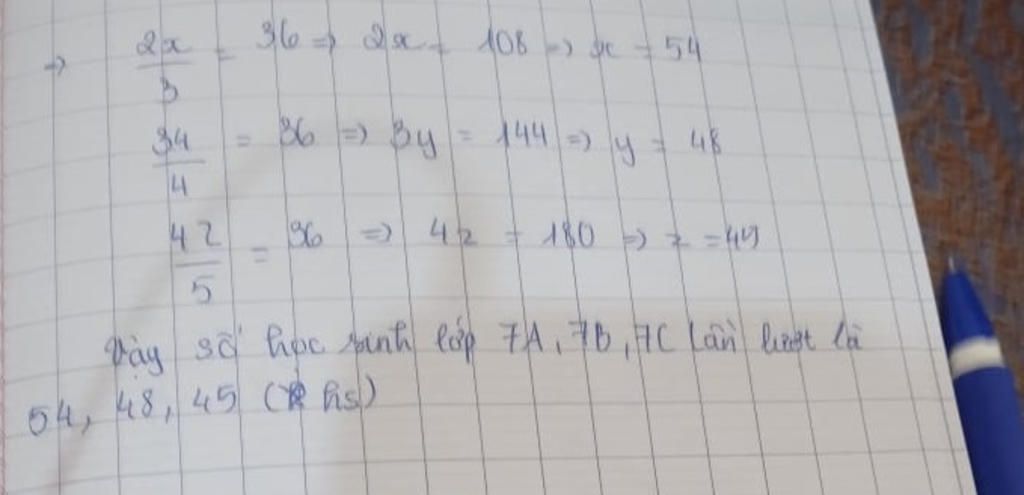 => 2x/3 = 36 => 2x = 108 => x = 54
3y/4 = 36 => 3y = 144 => y = 48
4z/5 = 36 => 4z = 180 => z = 45
Vậy số học sinh lớp 7A, 7B, 7C lần lượt là
54, 48, 45 (hs)